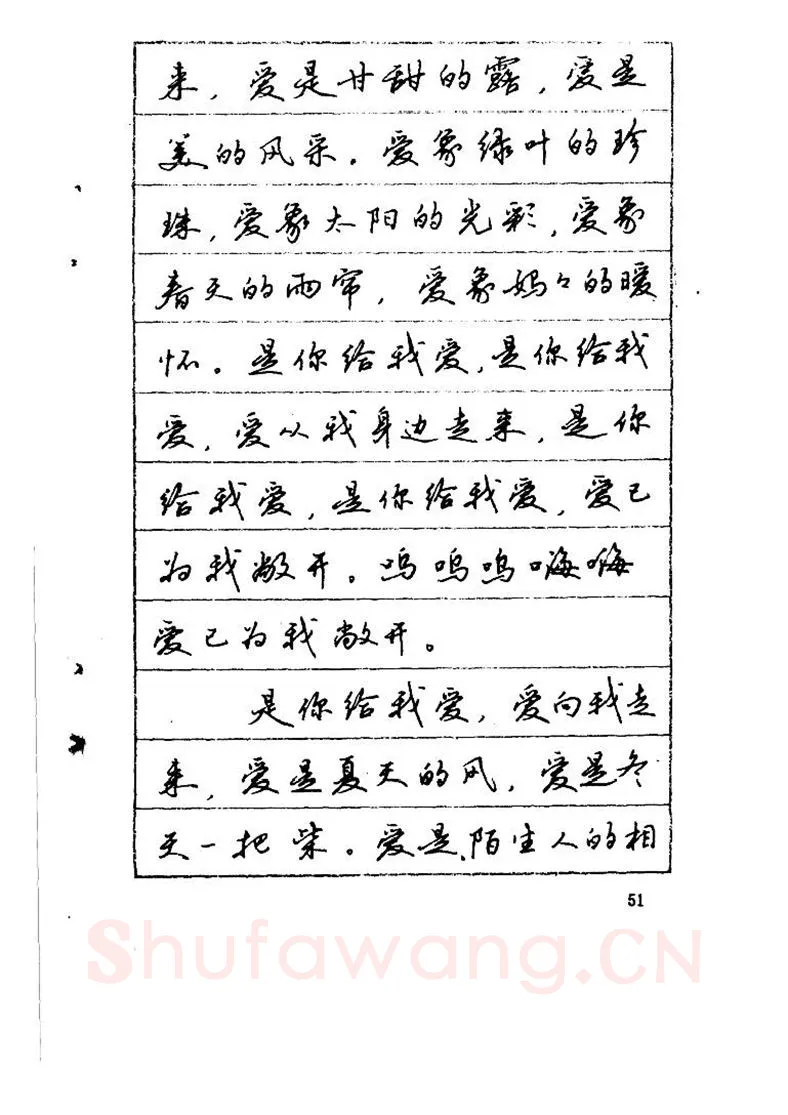 来，爱是甘甜的露，爱是
美的风采。爱象绿叶的珍
珠，爱象太阳的光彩，爱象
春天的雨帘，爱象妈々的暖
怀。是你给我爱，是你给我
爱，爱从我身边走来，是你
给我爱，是你给我爱，爱已
为我敞开。呜呜呜嗨嗨
爱已为我敞开。
是你给我爱，爱向我走
来，爱是夏天的风，爱是冬
天一把柴。爱是陌生人的相
51
Shufawang.CN